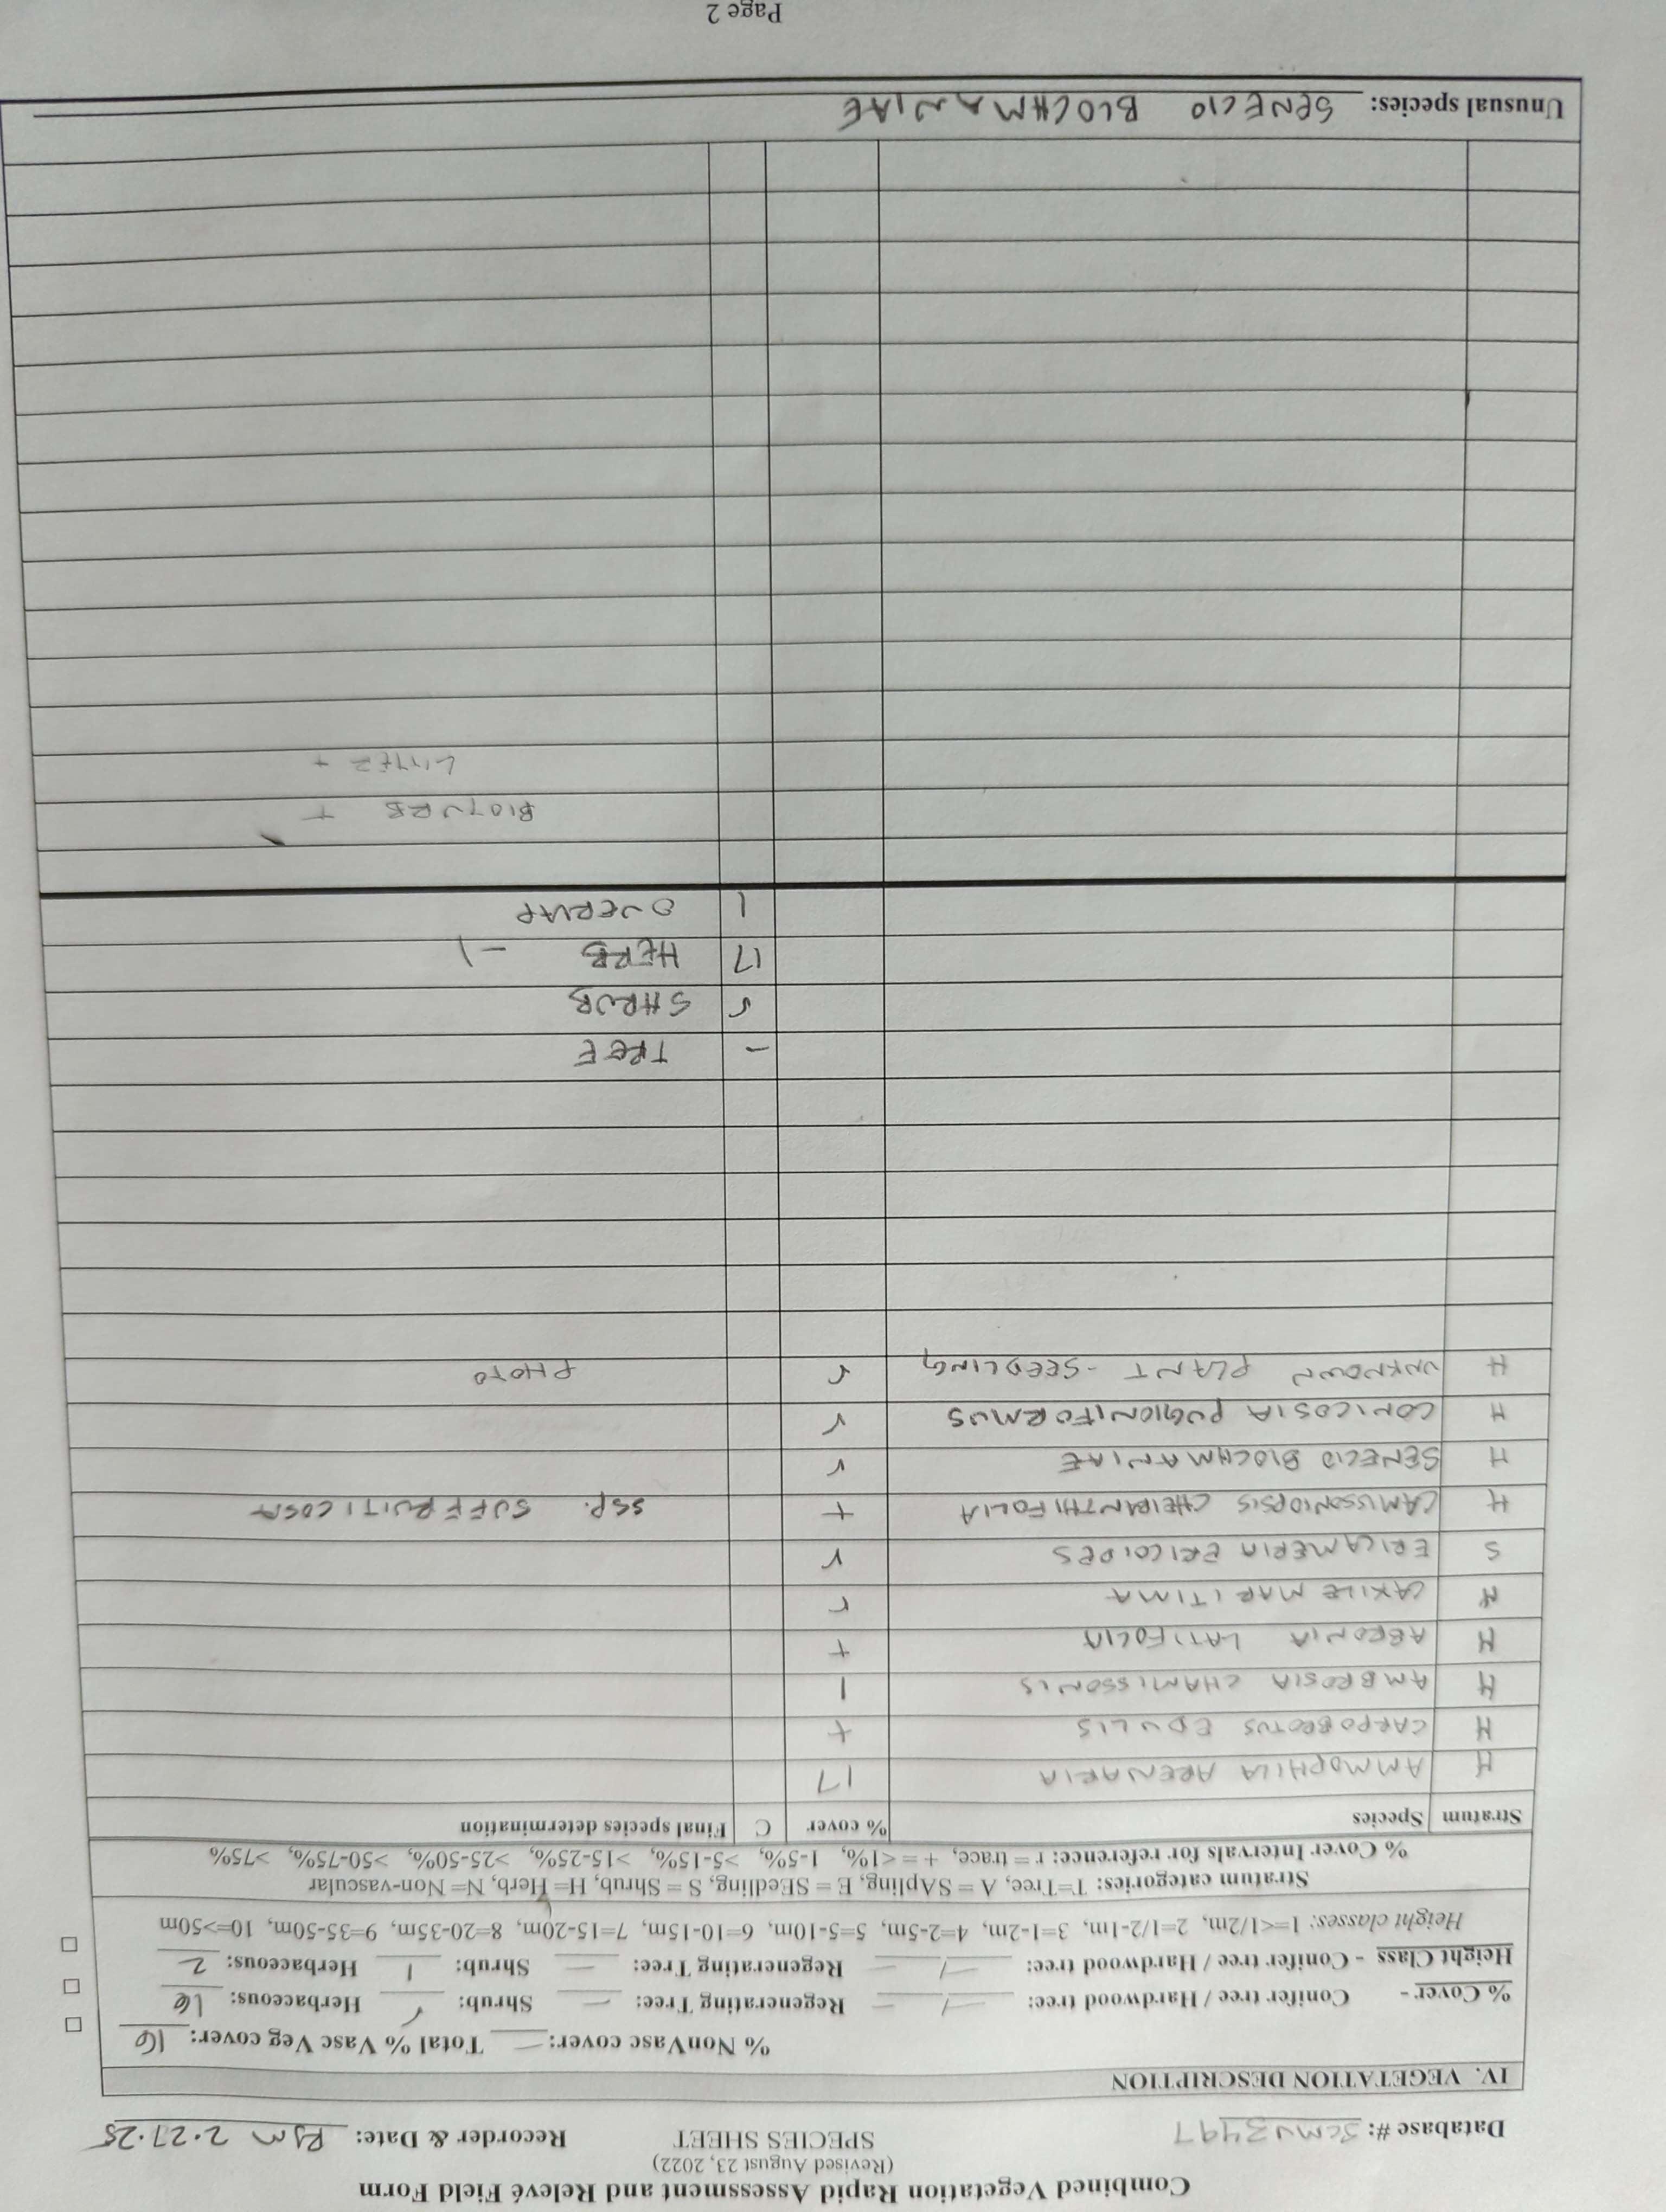 Combined Vegetation Rapid Assessment and Relevé Field Form
(Revised August 23, 2022)
SPECIES SHEET
Database #: SCMV3497 Recorder & Date: RJM 2.27.25
IV. VEGETATION DESCRIPTION
% NonVasc cover: — Total % Vasc Veg cover: 16
% Cover - Conifer tree / Hardwood tree: — / — Regenerating Tree: — Shrub: r Herbaceous: 16
Height Class - Conifer tree / Hardwood tree: — / — Regenerating Tree: — Shrub: 1 Herbaceous: 2
Height classes: 1=<1/2m, 2=1/2-1m, 3=1-2m, 4=2-5m, 5=5-10m, 6=10-15m, 7=15-20m, 8=20-35m, 9=35-50m, 10=>50m
Stratum categories: T=Tree, A = SApling, E = SEedling, S = Shrub, H= Herb, N= Non-vascular
% Cover Intervals for reference: r = trace, + = <1%, 1-5%, >5-15%, >15-25%, >25-50%, >50-75%, >75%
Stratum Species % cover C Final species determination
H AMMOPHILA ARENARIA 17
H CARPOBROTUS EDULIS +
H AMBROSIA CHAMISSONIS 1
H ABRONIA LATIFOLIA +
H CAKILE MARITIMA r
S ERICAMERIA ERICOIDES r
H CAMISSONIOPSIS CHEIRANTHIFOLIA + SSP. SUFFRUITICOSA
H SENECIO BLOCHMANIAE r
H CONICOSIA PUGIONIFORMUS r
H UNKNOWN PLANT - SEEDLING r PHOTO
— TREE
r SHRUB
17 HERB -1
1 OVERLAP
BIOTURB +
LITTER +
Unusual species: SENECIO BLOCHMANIAE
Page 2